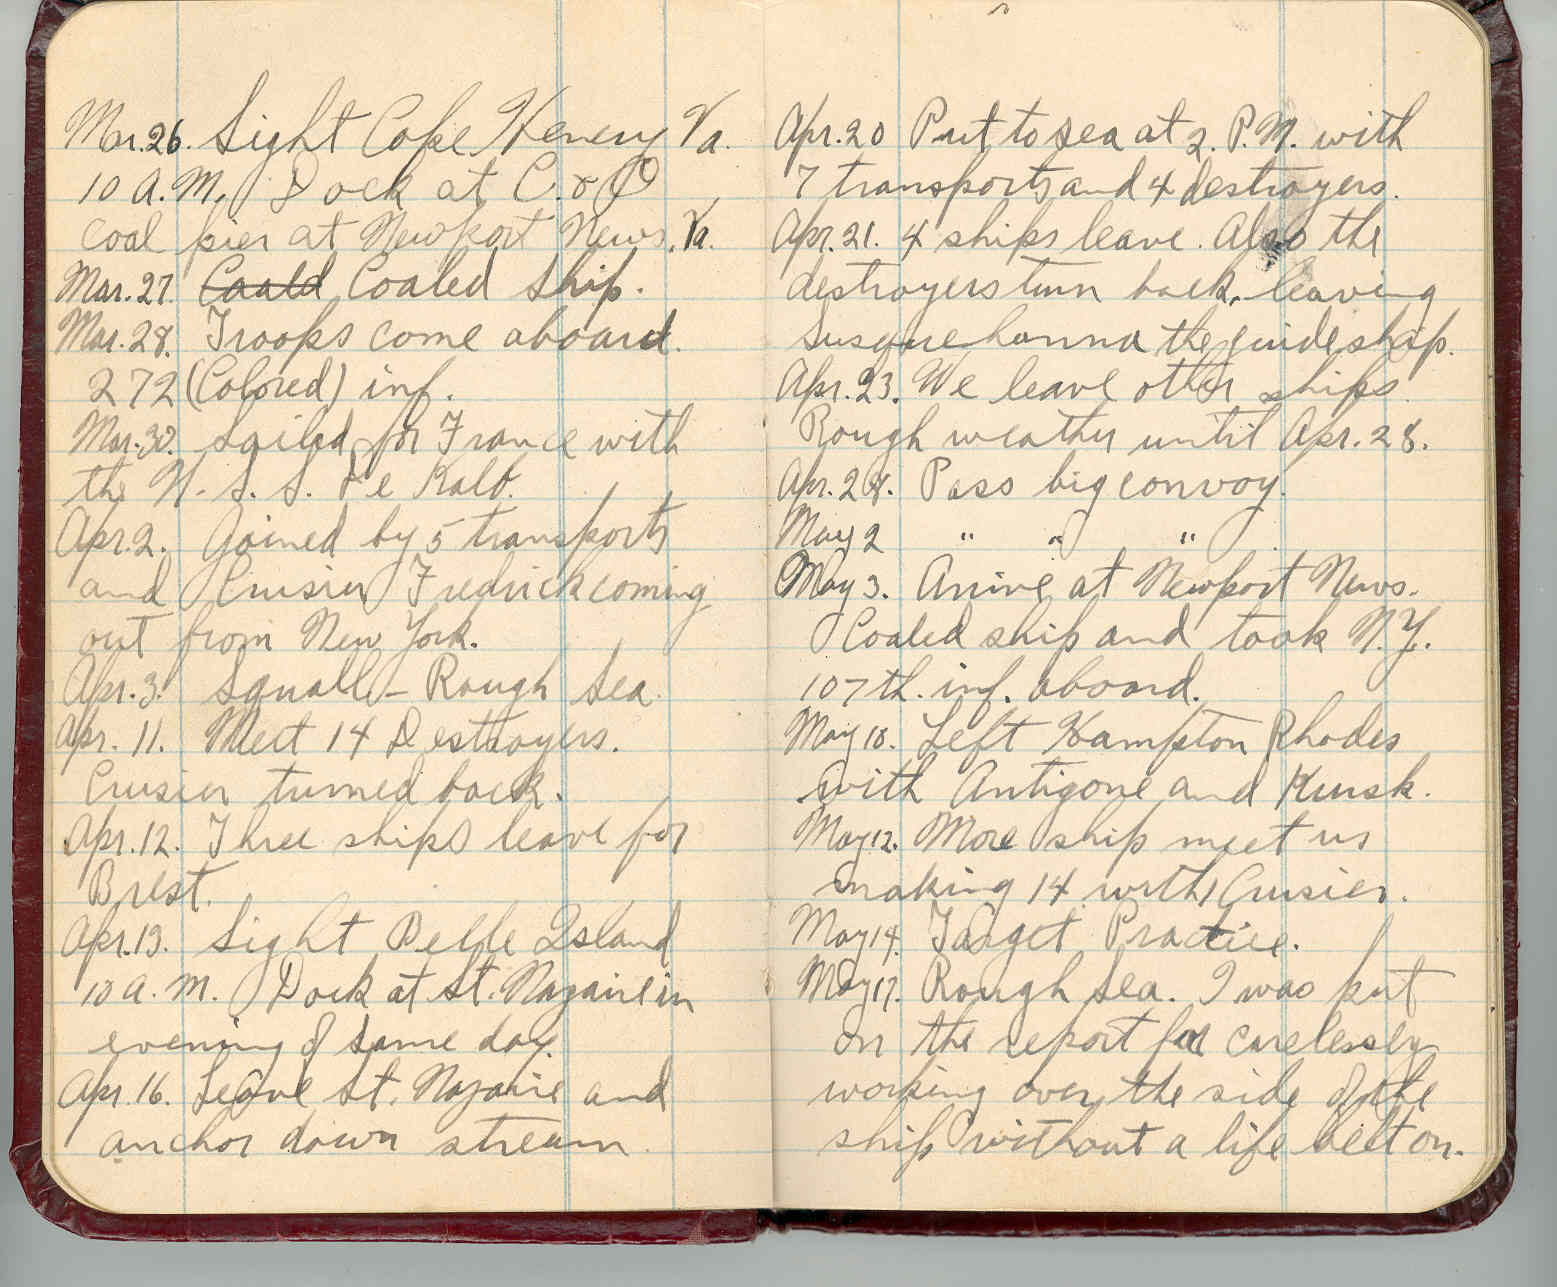 Mar.26. Sight Cape Henery Va.
10 A.M. Dock at C. & O
coal pier at Newport News, Va.
Mar.27. Caald Coaled Ship.
Mar.28. Troops come aboard.
272 (Colored) inf.
Mar.30. sailed for France with
the U.S.S. De Kalb.
Apr.2. Joined by 5 transports
and Crusier Fredrick coming
out from New York.
Apr.3. Squall - Rough Sea.
Apr. 11. Meet 14 Destroyers.
Crusier turned back.
Apr.12. Three ships leave for
Brest.
Apr.13. Sight Belle Island
10 A.M. Dock at St. Nazaire in
evening of same day.
Apr.16. Leave St. Nazaire and
anchor down stream.
Apr.20 Put to sea at 2. P.M. with
7 transports and 4 destroyers.
Apr.21. 4 ships leave. Also the
destroyers turn back, leaving
Susquehanna the guide ship.
Apr.23. We leave other ships.
Rough weather until Apr.28.
Apr.28. Pass big convoy.
May 2 " " "
May 3. Arrive at Newport News.
Coaled ship and took N.Y.
107th. inf. aboard.
May 10. Left Hampton Rhodes
with Antigone and Kursk.
May 12. More ship meet us
making 14 with Crusier.
May 14. Target Practice.
May 17. Rough Sea. I was put
on the report for carelessly
working over the side of the
ship without a life belt on.